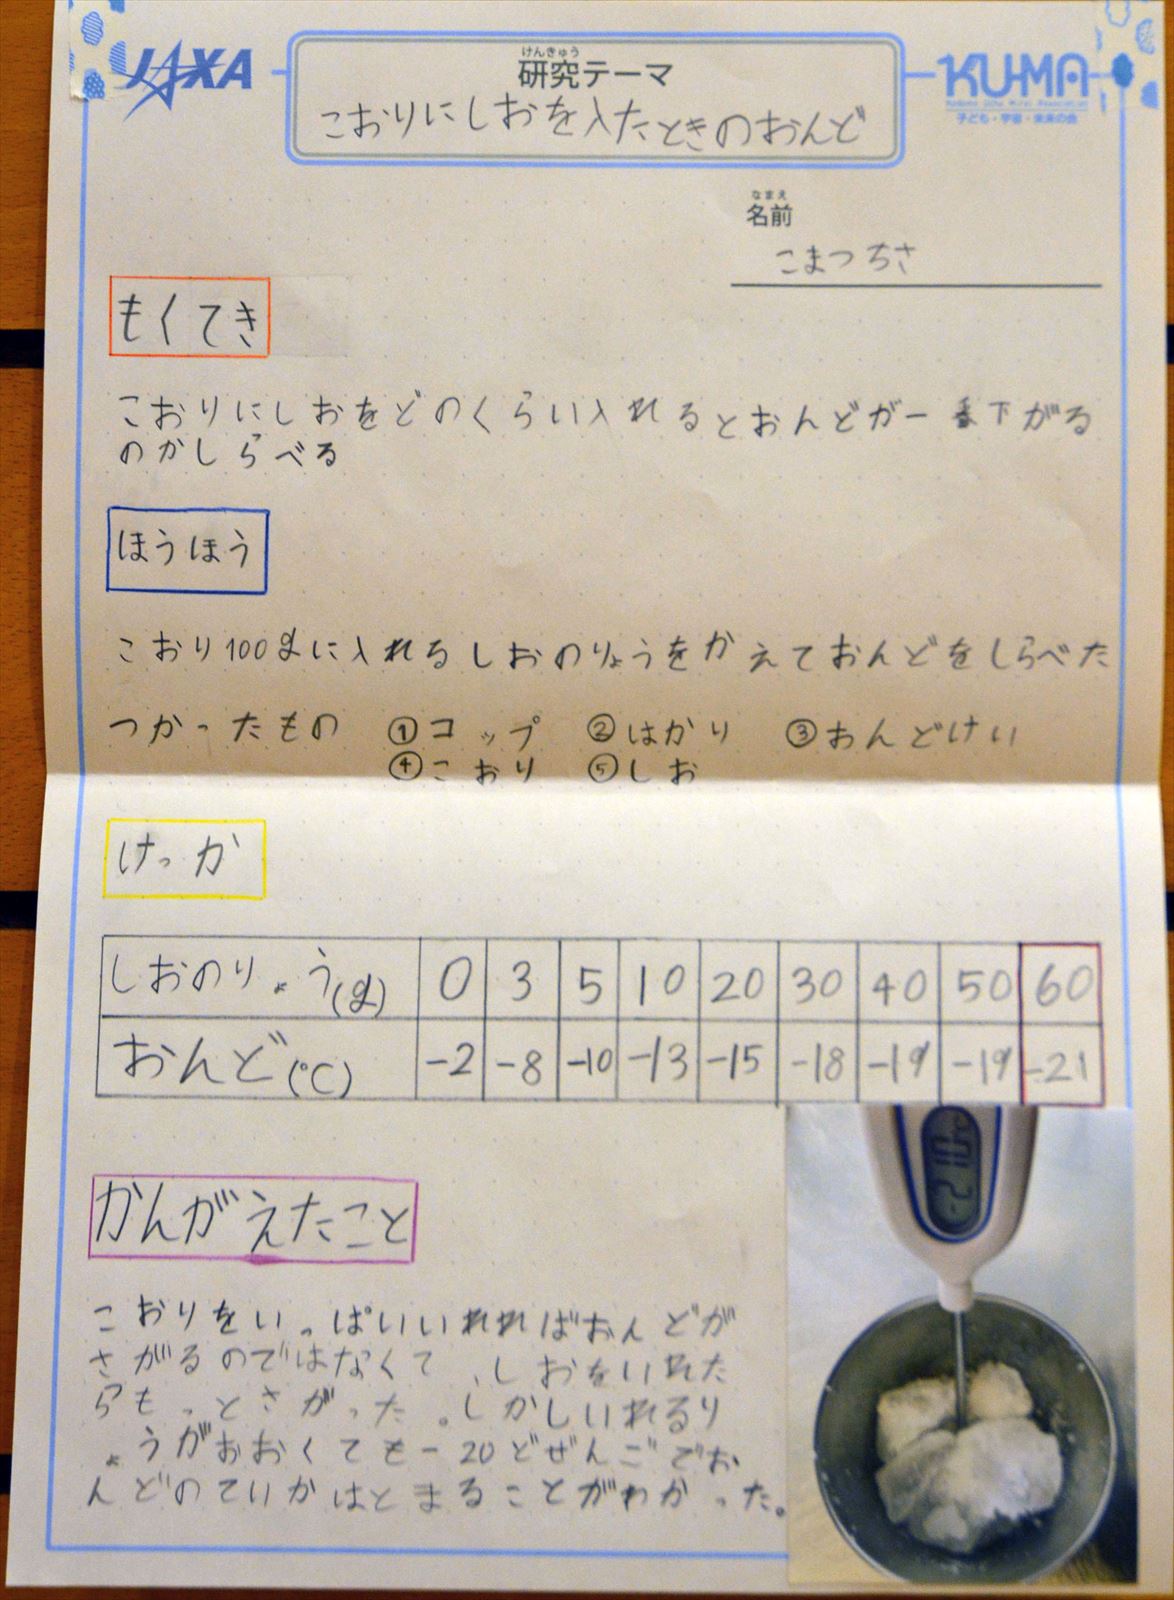 JAXA
けんきゅう
研究テーマ
KUMA
子ども・宇宙・未来の会
こおりにしおを入たときのおんど
なまえ
名前
こまつちさ
もくてき
こおりにしおをどのくらい入れるとおんどが一番下がる
のかしらべる
ほうほう
こおり100gに入れるしおのりょうをかえておんどをしらべた
つかったもの ①コップ ②はかり ③おんどけい
④こおり ⑤しお
けっか
しおのりょう(g) 0 3 5 10 20 30 40 50 60
おんど(℃) -2 -8 -10 -13 -15 -18 -19 -19 -21
かんがえたこと
こおりをいっぱいいれればおんどが
さがるのではなくて、しおをいれた
らもっとさがった。しかしいれるり
ょうがおおくても-20どぜんごでお
んどのていかはとまることがわかった。
-21.0